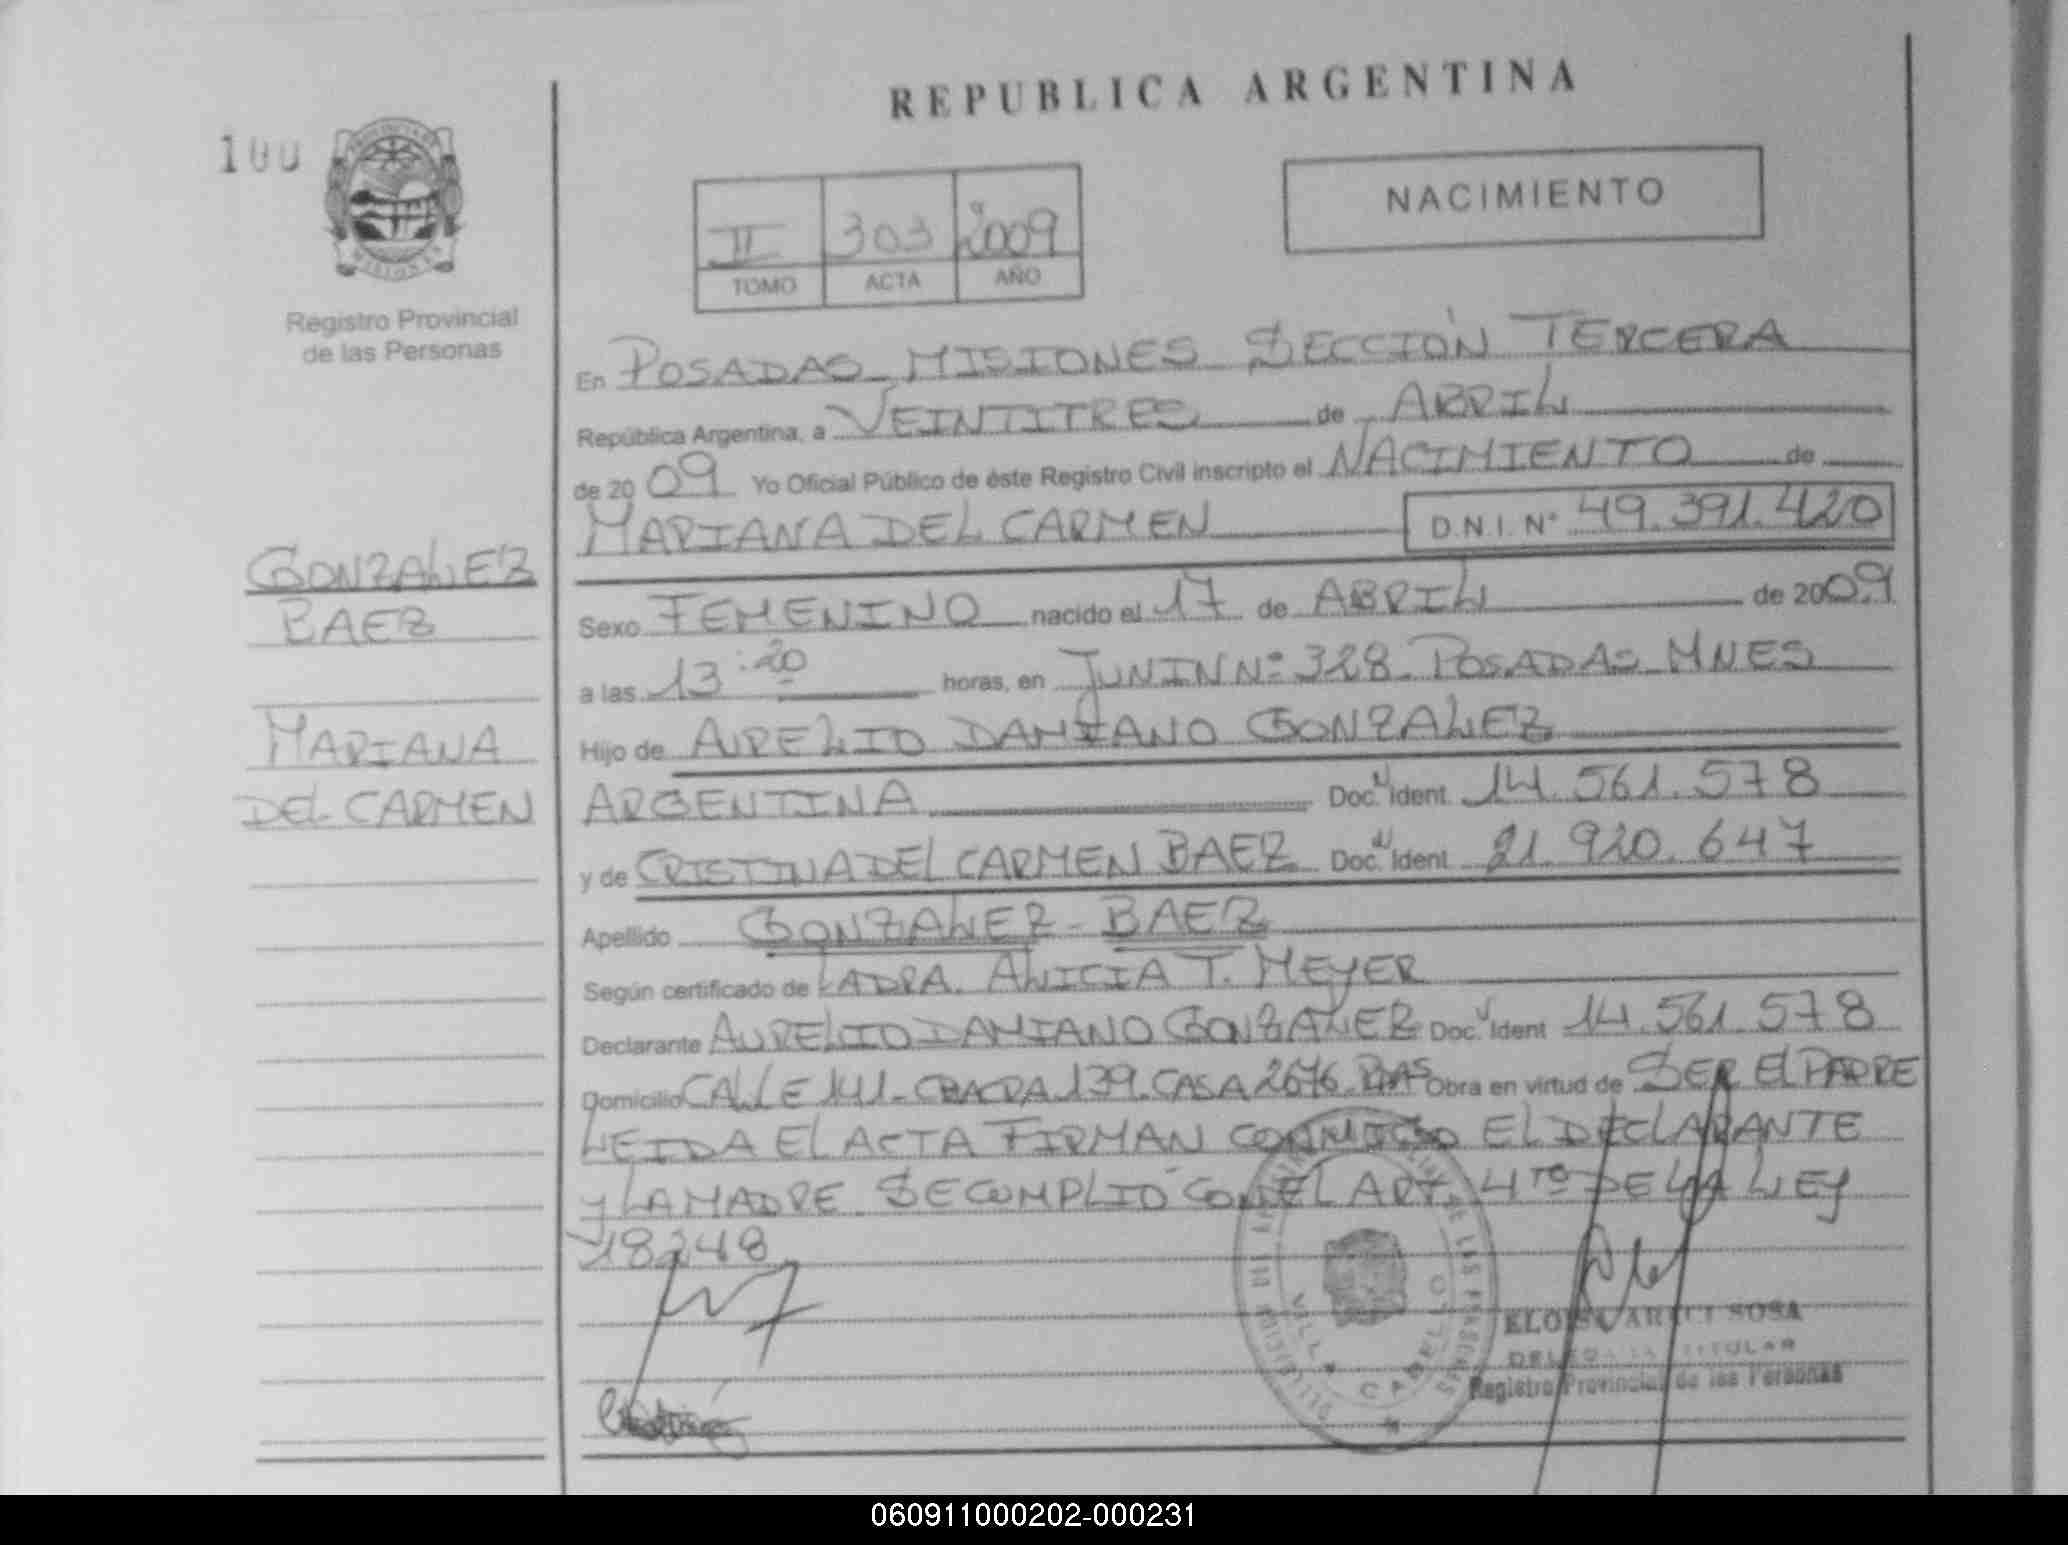 REPUBLICA ARGENTINA
100
PROVINCIA
MISIONES
Registro Provincial
de las Personas
II 303 2009
TOMO ACTA AÑO
NACIMIENTO
En POSADAS MISIONES SECCIÓN TERCERA
República Argentina, a VEINTITRES de ABRIL
de 2009 Yo Oficial Público de éste Registro Civil inscripto el NACIMIENTO de
MARIANA DEL CARMEN D.N.I. Nº 49.391.420
GONZALEZ
BAEZ
MARIANA
DEL CARMEN
Sexo FEMENINO nacido el 17 de ABRIL de 2009
a las 13:20 horas, en JUNIN Nº 328. POSADAS MNES
Hijo de AURELIO DAMIANO GONZALEZ
ARGENTINA Doc. Ident 14.561.578
y de CRISTINA DEL CARMEN BAEZ Doc. Ident 21.920.647
Apellido GONZALEZ - BAEZ
Según certificado de LA DRA. ALICIA T. MEYER
Declarante AURELIO DAMIANO GONZALEZ Doc. Ident 14.561.578
Domicilio CALLE 141 - CHACRA 139. CASA 2676. PDAS Obra en virtud de SER EL PADRE
LEIDA EL ACTA FIRMAN CONMIGO EL DECLARANTE
Y LA MADRE. SE CUMPLIÓ CON EL ART. 4TO DE LA LEY
18248
VILLA CABELLO
SOSA
DELEGADA TITULAR
Registro Provincial de las Personas
060911000202-000231